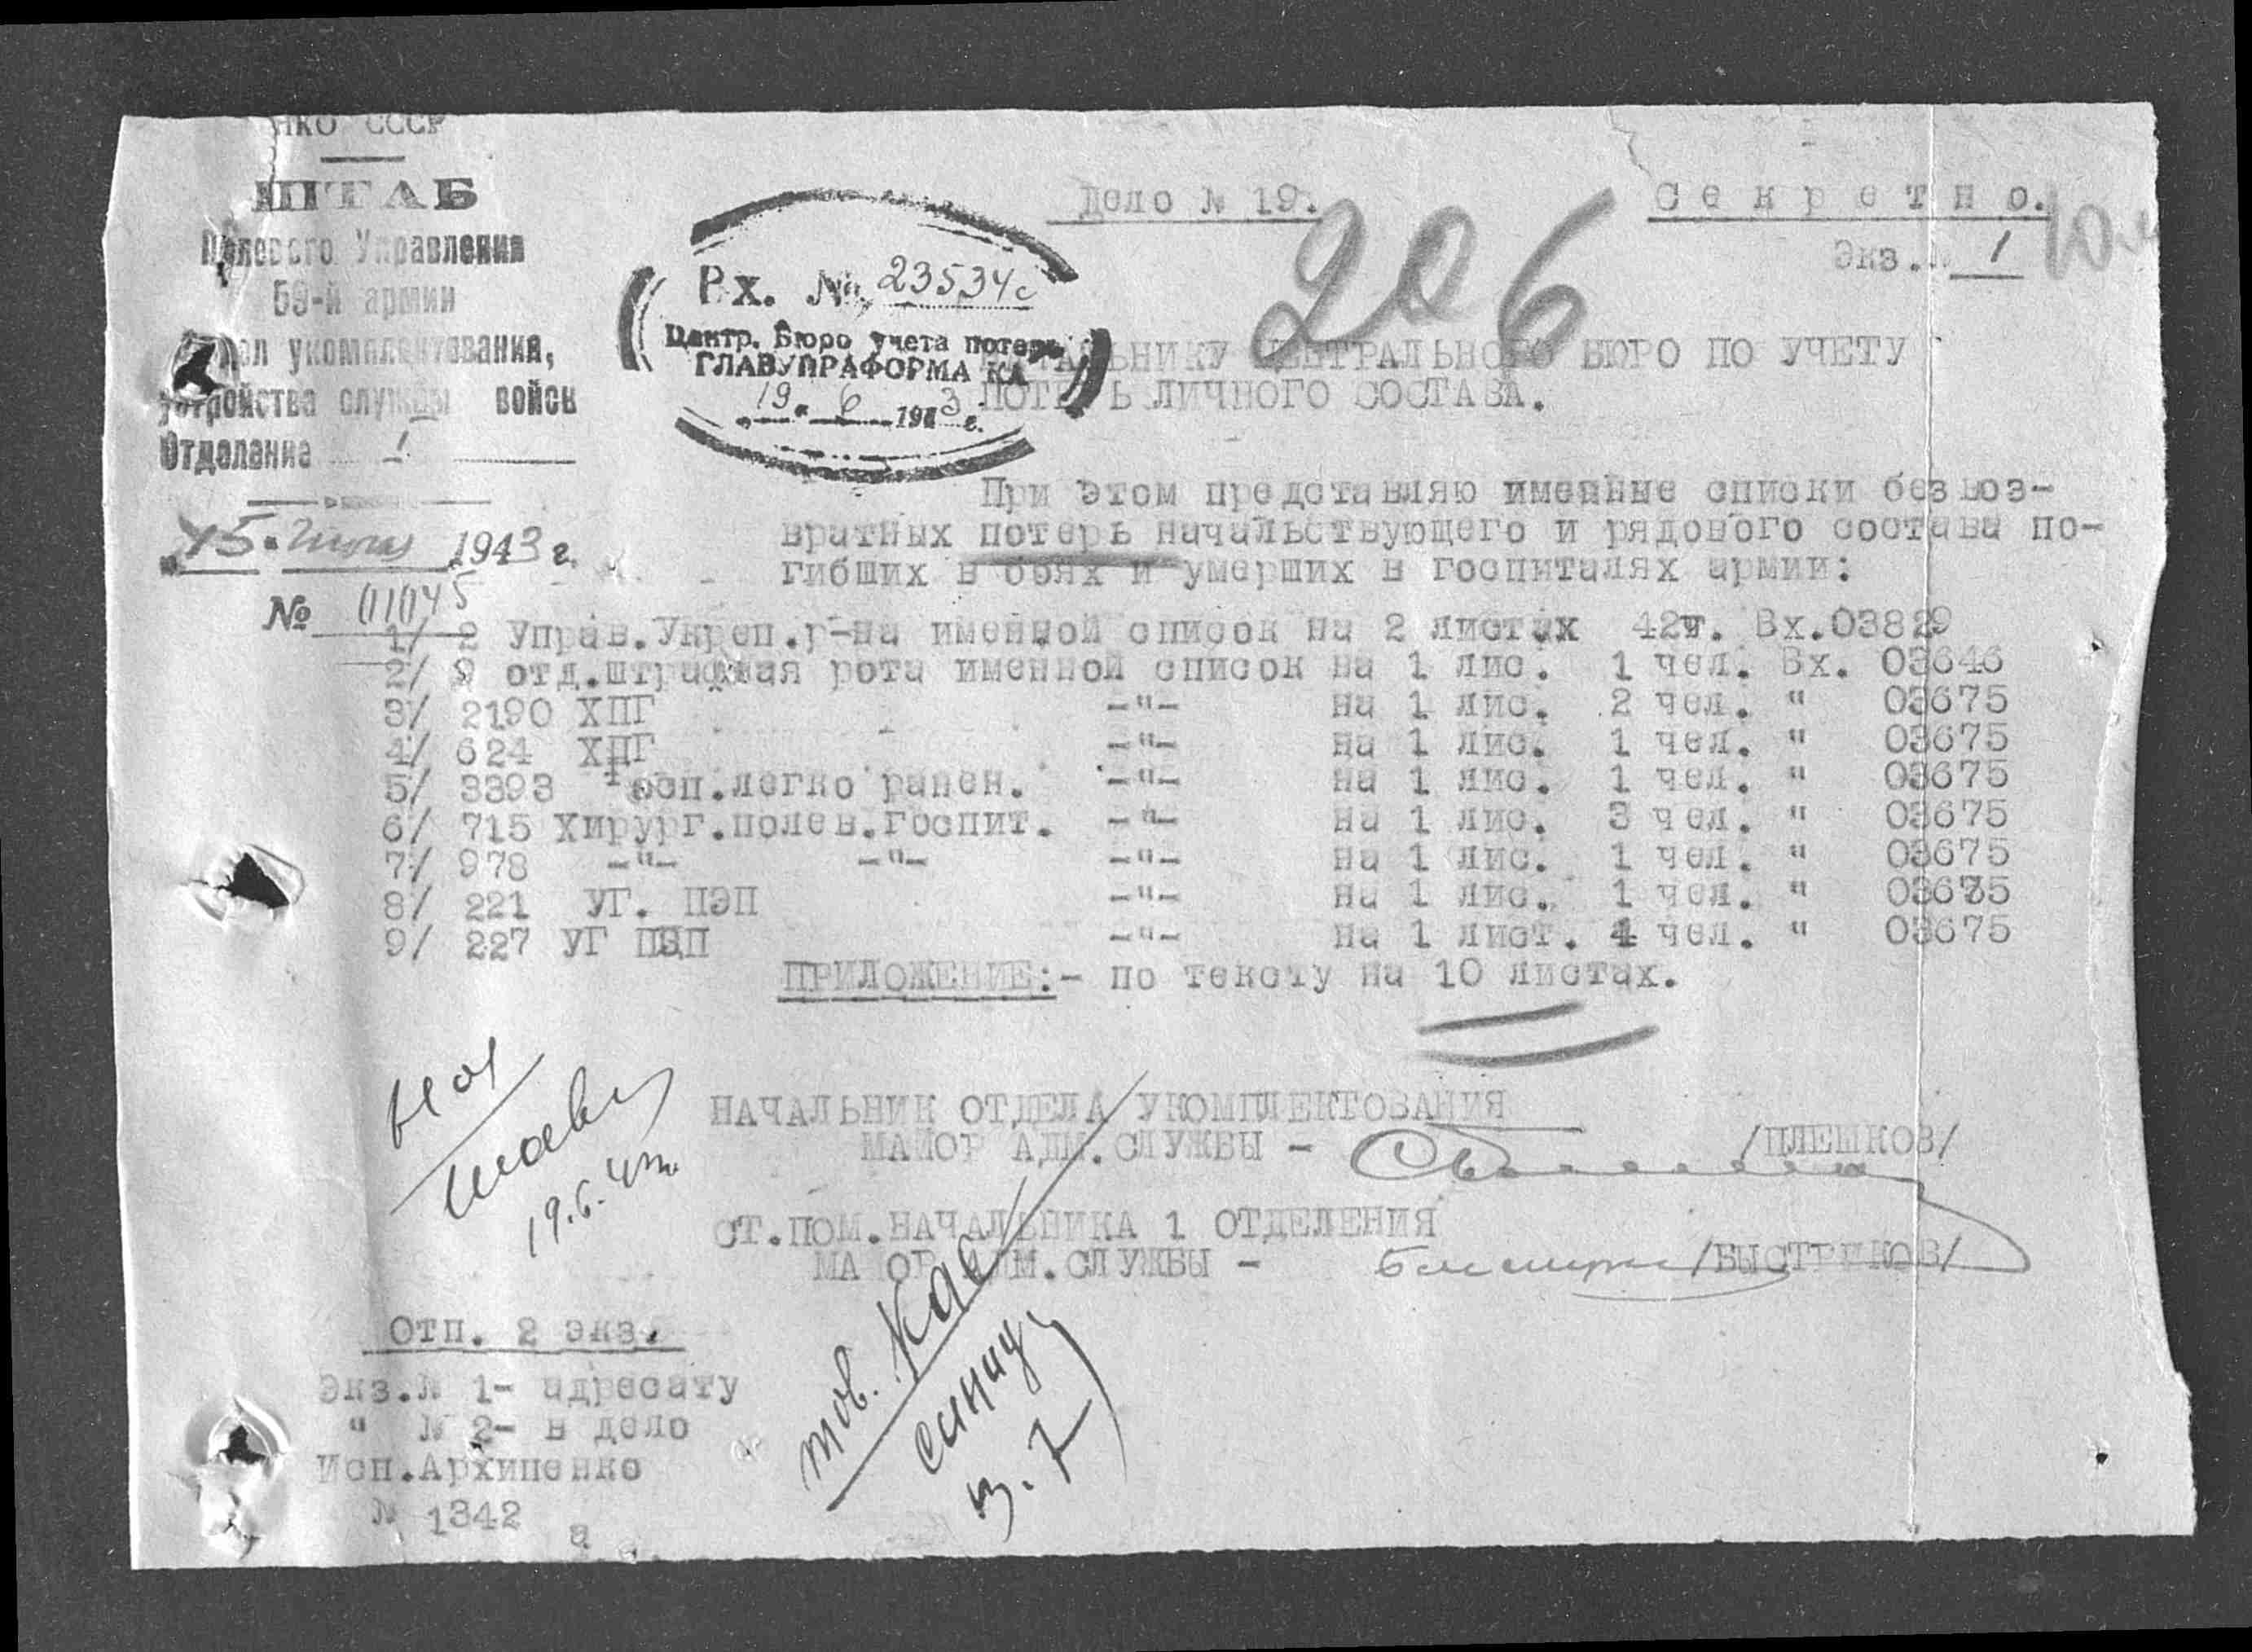 НКО СССР
ШТАБ
Полевого Управления
59-й армии
укомплектования,
устройства службы войск
Отделение 1
15 1943 г.
№ 01045
Вх. № 23534с
Центр. Бюро учета потерь
ГЛАВУПРАФОРМА КА
19 " 6 1943 г.
Дело № 19.
206
Секретно.
Экз.№ 1
НАЧАЛЬНИКУ ЦЕНТРАЛЬНОГО БЮРО ПО УЧЕТУ
ПОТЕРЬ ЛИЧНОГО СОСТАВА.
При этом представляю именные списки безвоз-
вратных потерь начальствующего и рядового состава по-
гибших в боях и умерших в госпиталях армии:
1/ 2 Управ.Укреп.р-на именной список на 2 листах 42ч. Вх.03829
2/ 9 отд.штрафная рота именной список на 1 лис. 1 чел. Вх. 03646
3/ 2190 ХПГ -"- на 1 лис. 2 чел. " 03675
4/ 624 ХПГ -"- на 1 лис. 1 чел. " 03675
5/ 3393 Госп.легко ранен. -"- на 1 лис. 1 чел. " 03675
6/ 715 Хирург.полев.госпит. -"- на 1 лис. 3 чел. " 03675
7/ 978 -"- -"- -"- на 1 лис. 1 чел. " 03675
8/ 221 УГ. ПЭП -"- на 1 лис. 1 чел. " 03675
9/ 227 УГ ПЭП -"- на 1 лист. 4 чел. " 03675
ПРИЛОЖЕНИЕ:- по тексту на 10 листах.
НАЧАЛЬНИК ОТДЕЛА УКОМПЛЕКТОВАНИЯ
МАЙОР АДМ.СЛУЖБЫ - /ПЛЕШКОВ/
СТ.ПОМ.НАЧАЛЬНИКА 1 ОТДЕЛЕНИЯ
МАЙОР АДМ.СЛУЖБЫ - /БЫСТРИКОВ/
19.6.
тов.
Отп. 2 экз.
Экз.№ 1- адресату
" № 2- в дело
Исп.Архипенко
№ 1342